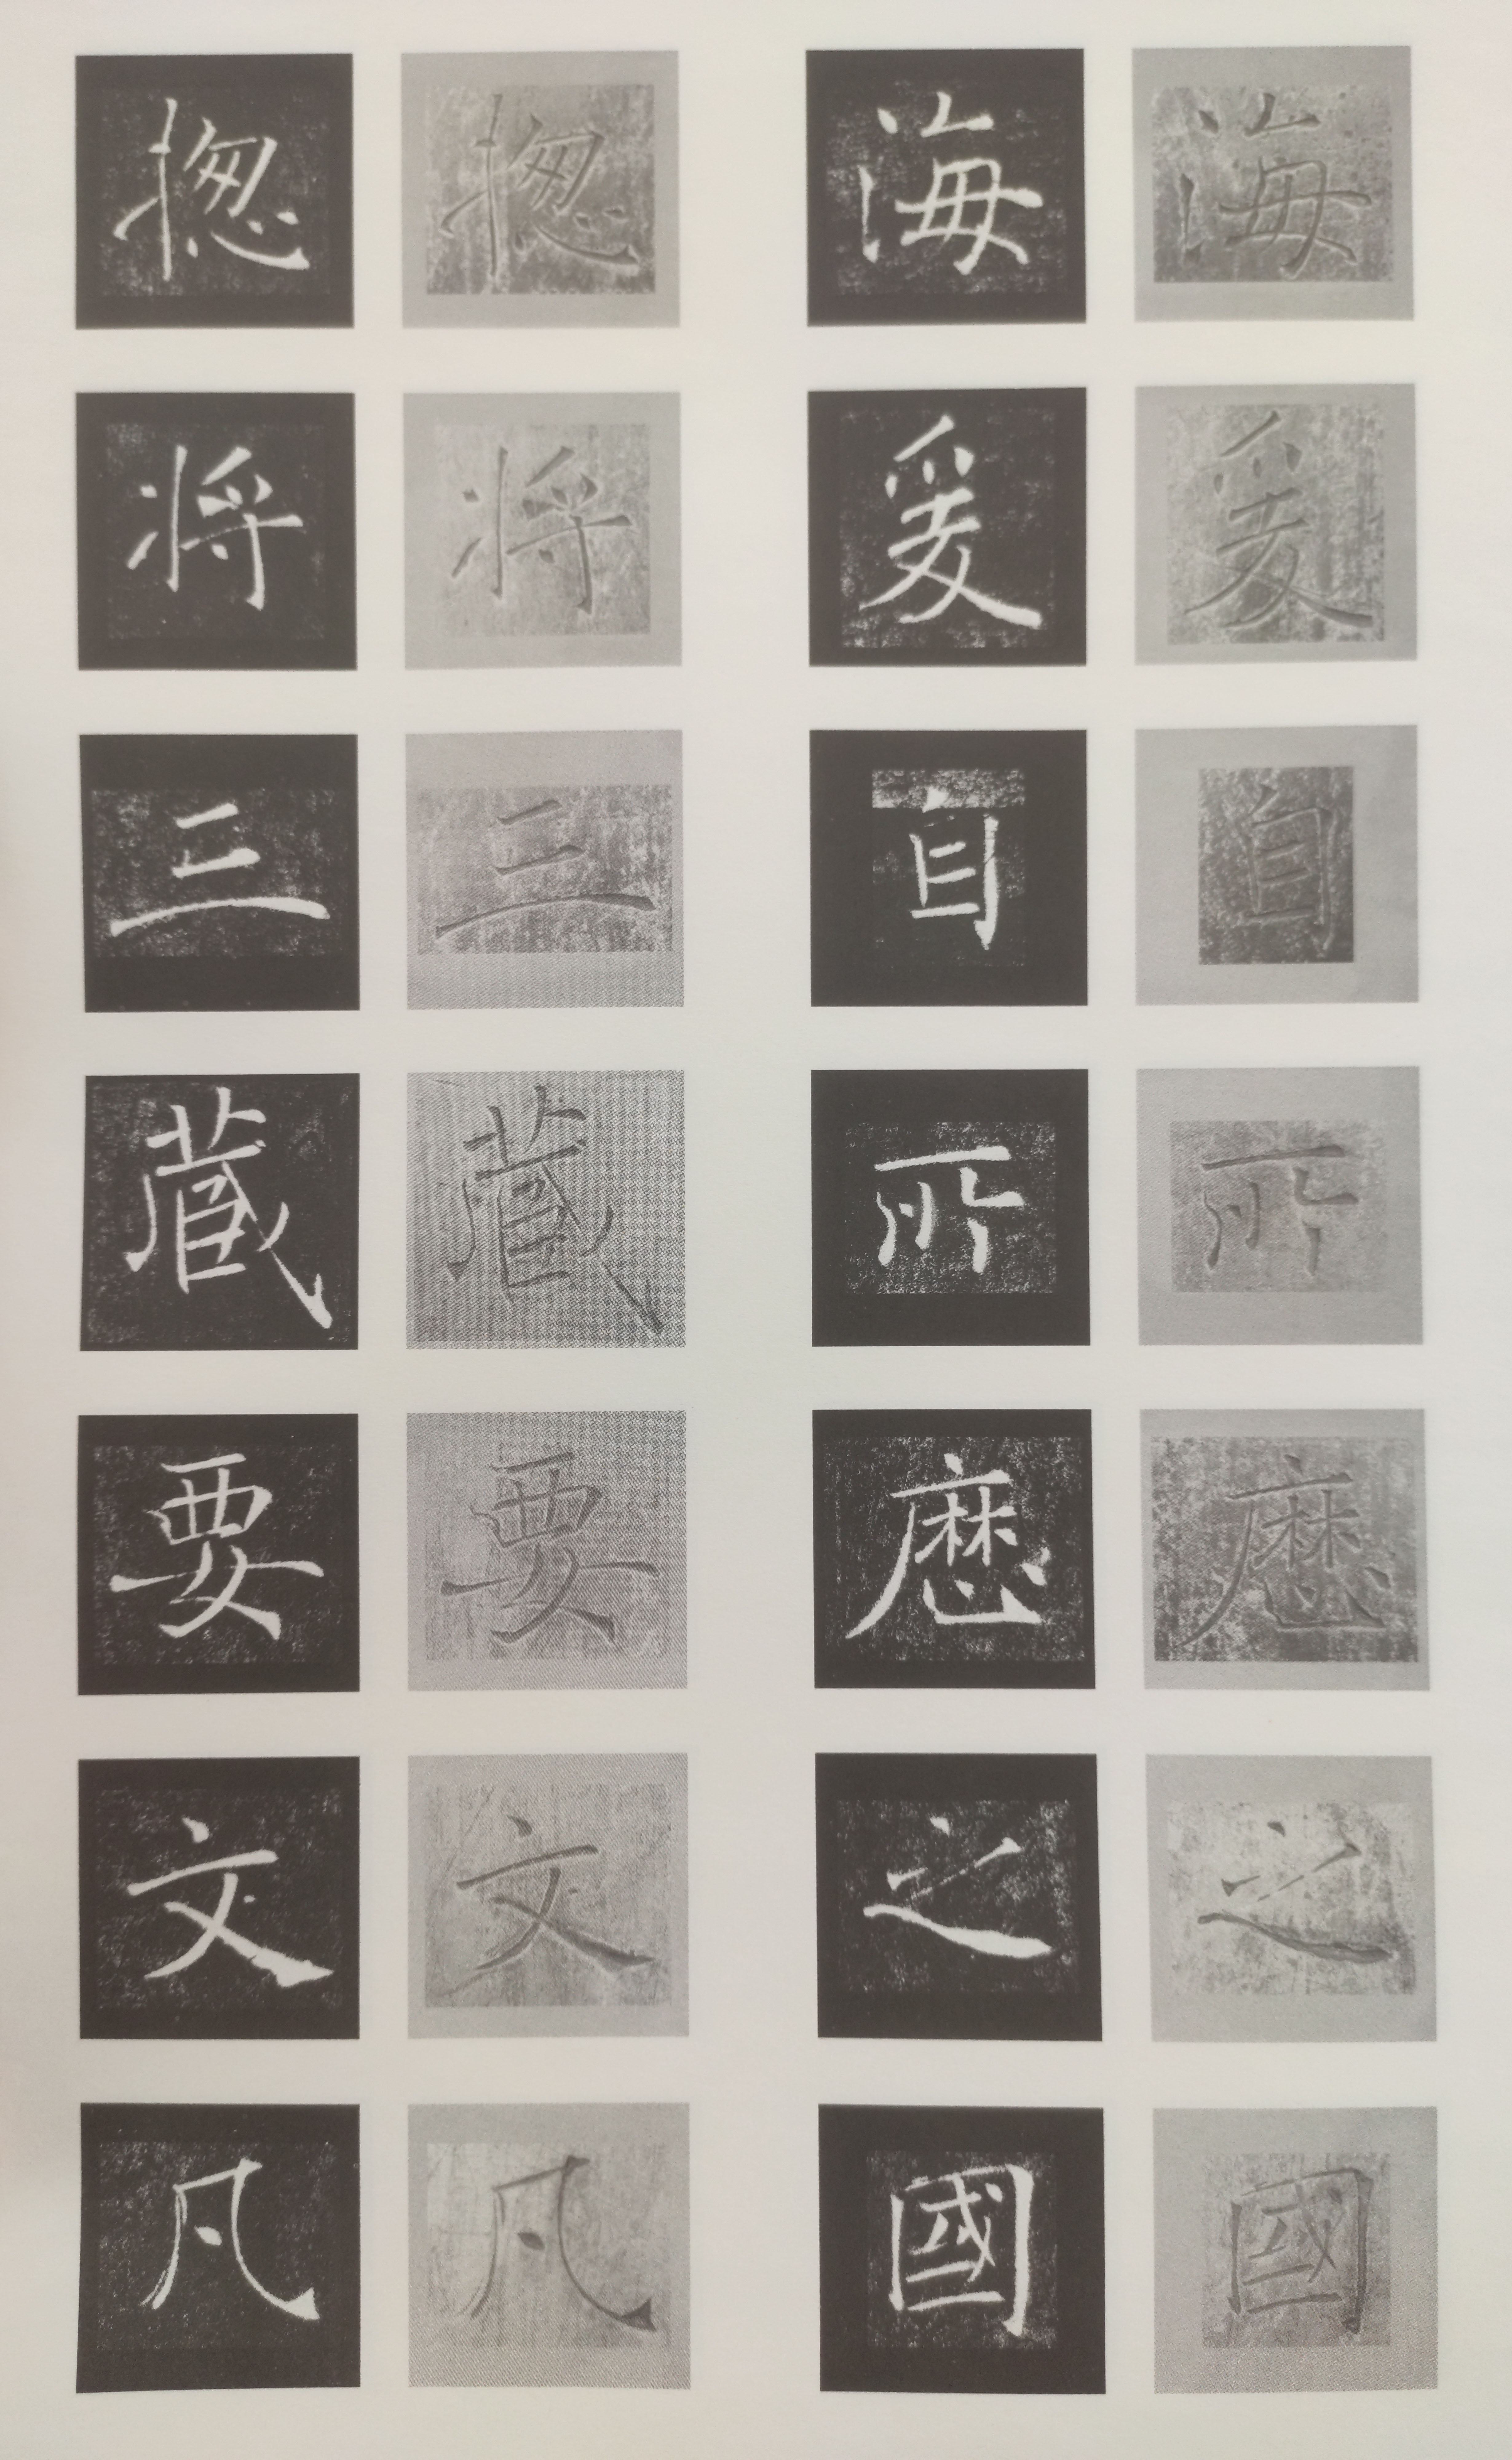 海 海
爰 爰
自 自
所 所
歷 歷
之 之
國 國
揔 揔
将 将
三 三
藏 藏
要 要
文 文
凡 凡